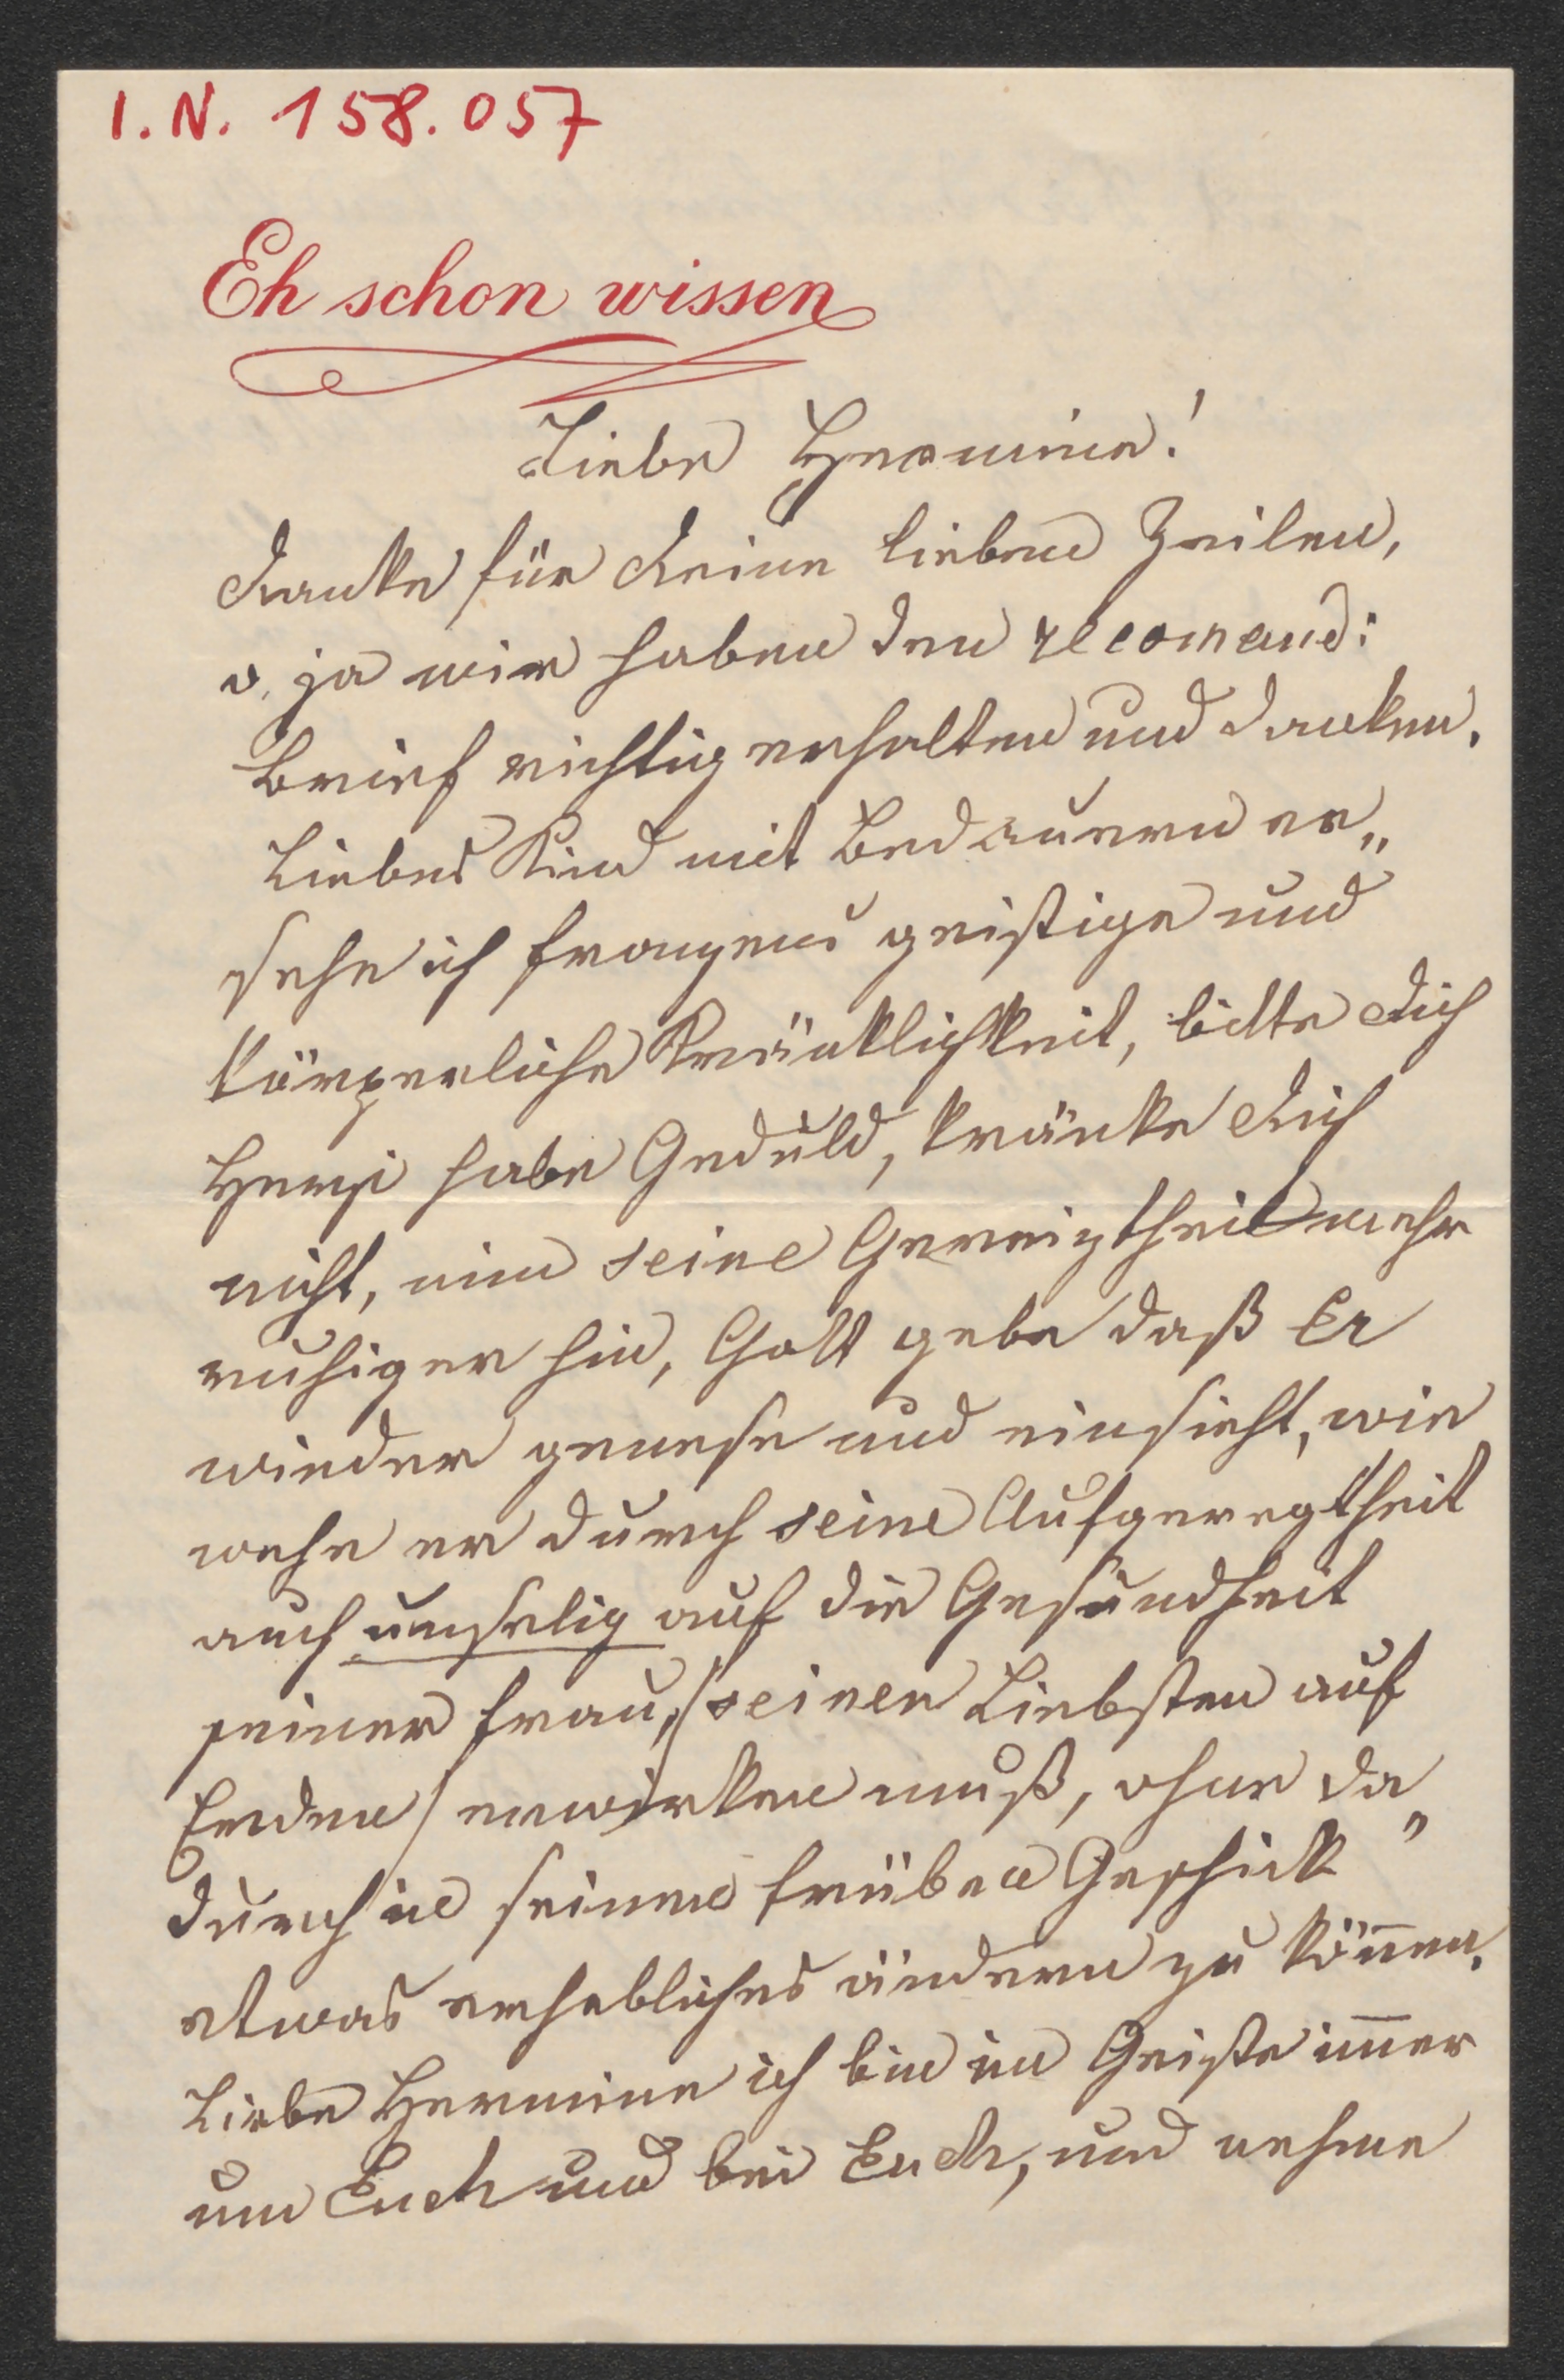 I.N. 158.057
Eh schon wissen
Liebe Hermine!
Danke für Deine lieben Zeilen,
o, ja wir haben den recomand:
Brief richtig erhalten und danken.
Liebes Kind mit Bedauern er„
sehe ich Franzens geistige und
körperliche Kränklichkeit, bitte Dich
Hermi habe Geduld, kränke Dich
nicht, nim seine Gereiztheit mehr
ruhiger hin, Gott gebe daß Er
wieder genese und einsieht, wie
wehe er durch seine Aufgeregtheit
auch unselig auf die Gesundheit
seiner Frau, /seinen Liebsten auf
Erden/ einwirken muß, ohne da„
durch in seinem trüben Geschick
etwas erhebliches ändern zu können.
Liebe Hermine ich bin im Geiste im̅er
um Euch und bei Euch, und nehme